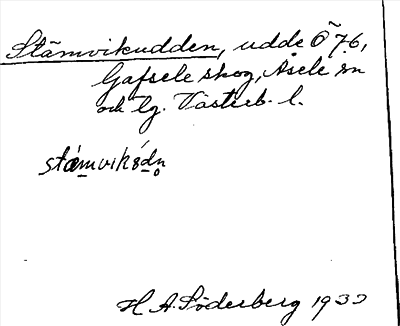 Stämvikudden, udde Ö 76,
Gafsele skog, Åsele sn
och lg. Västerb. l.
stämviksdn
H A. Söderberg 1933